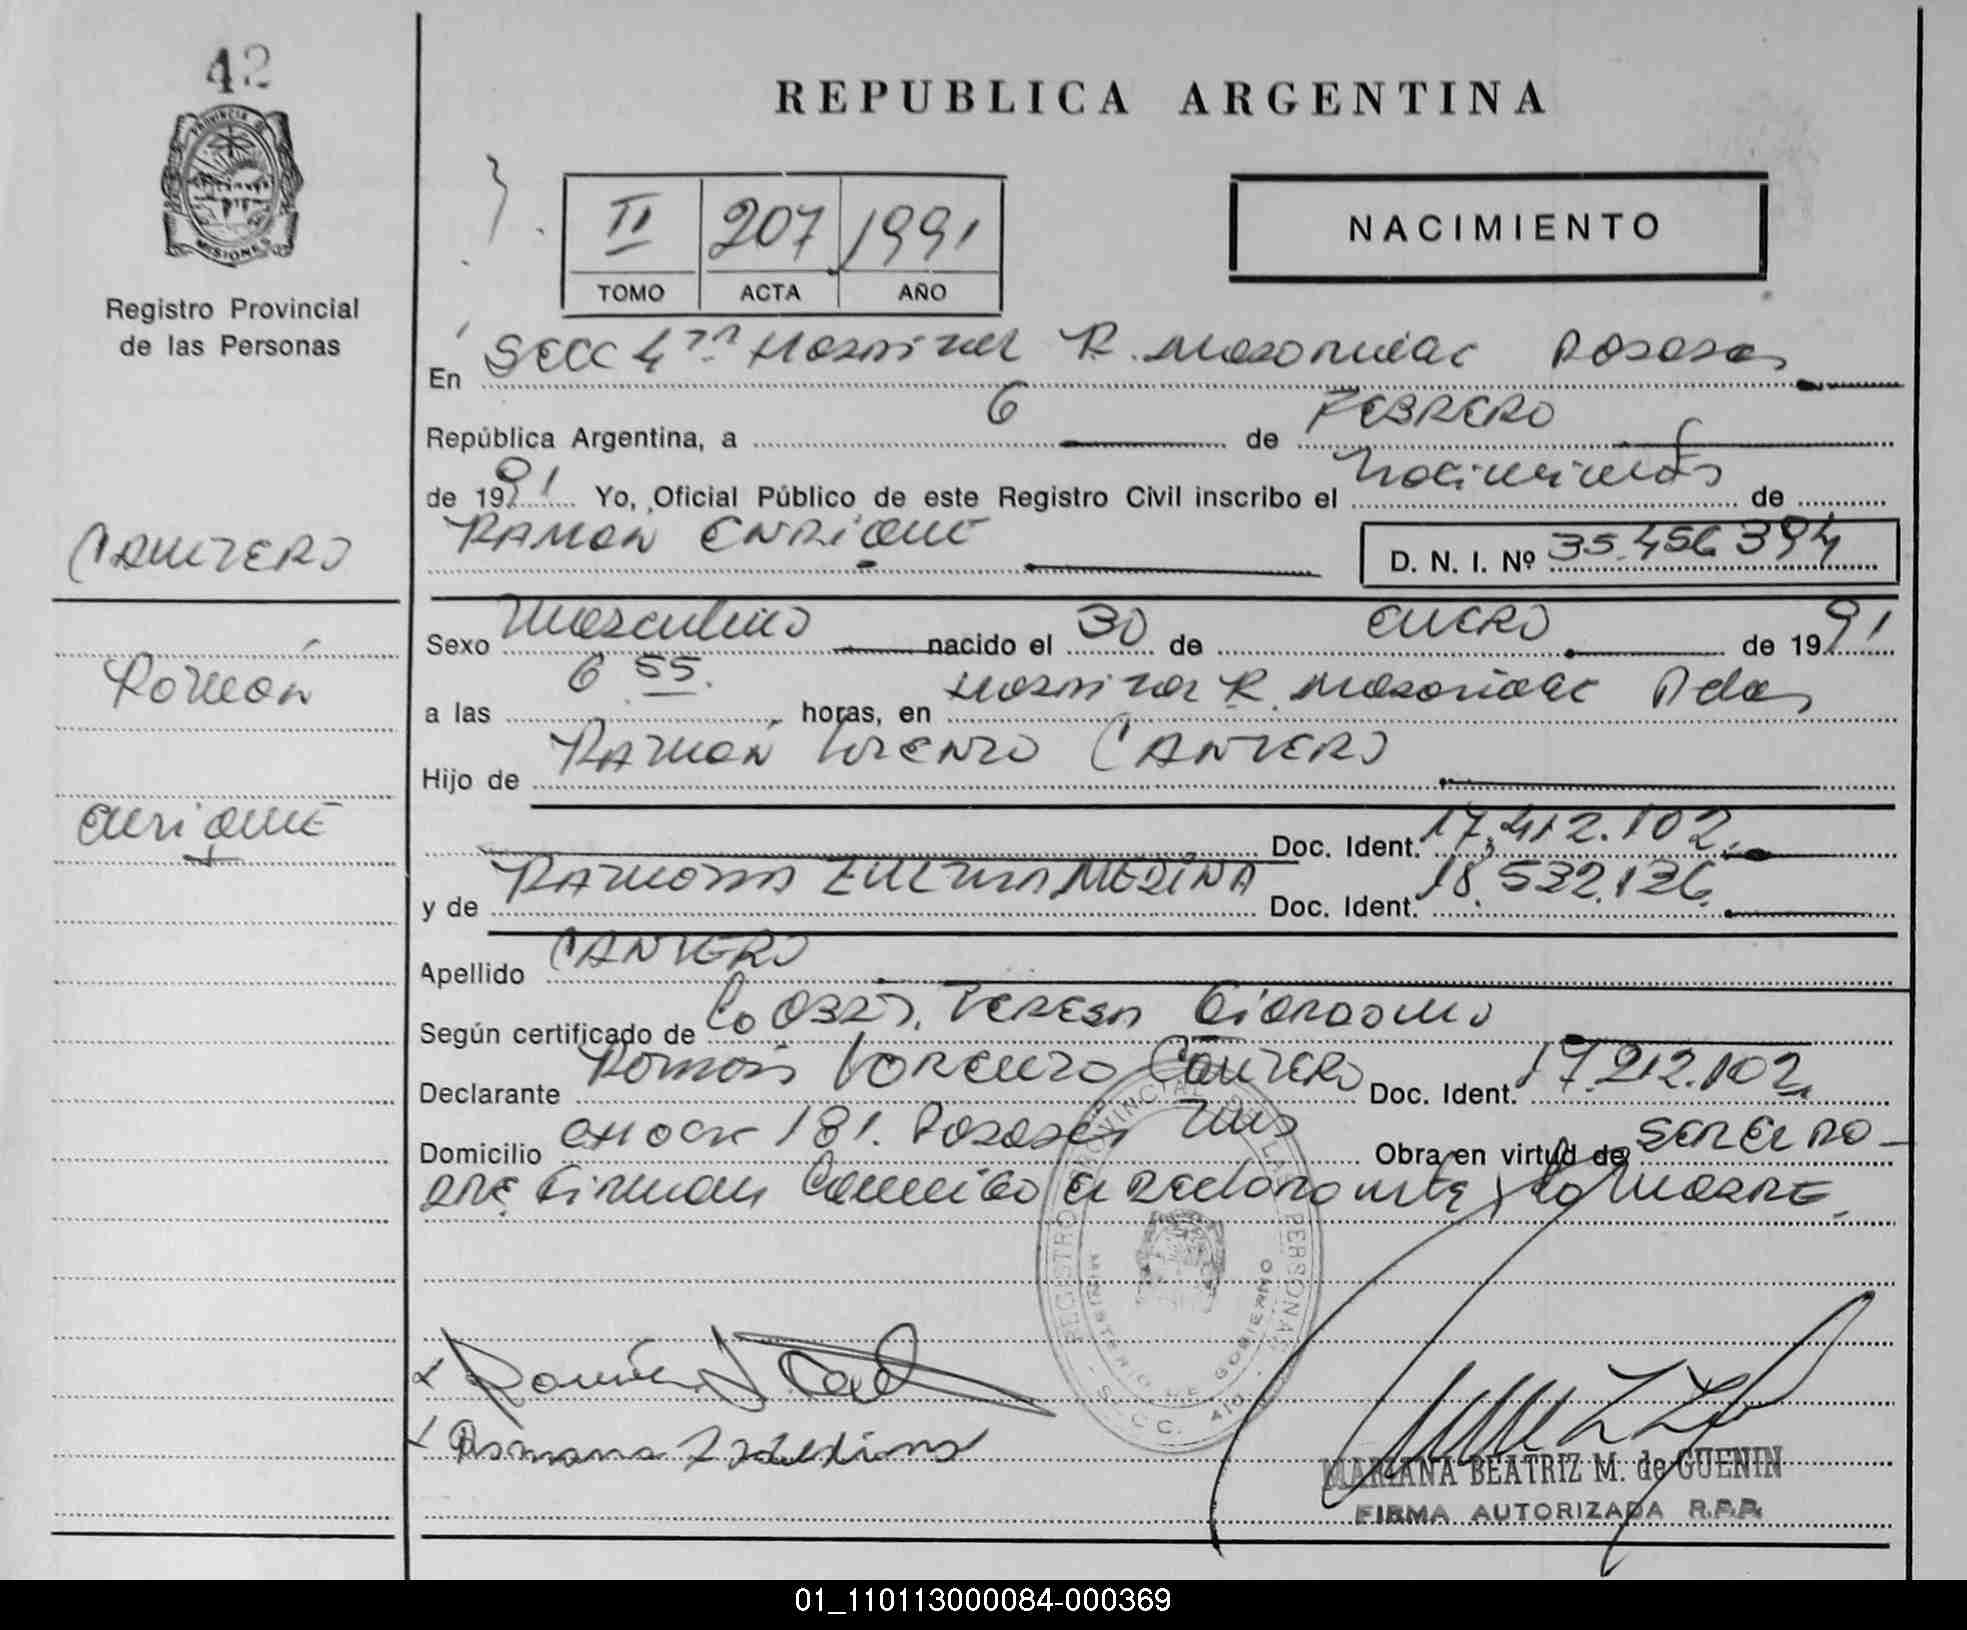 42
PROVINCIA DE
MISIONES
Registro Provincial
de las Personas
REPUBLICA ARGENTINA
II 207 1991
TOMO ACTA AÑO
NACIMIENTO
En Secc 4ta Hospital R. Madariaga Posadas
República Argentina, a 6 de FEBRERO
de 1991 Yo, Oficial Público de este Registro Civil inscribo el nacimiento de
RAMON ENRIQUE D. N. I. Nº 35.456.394
CANTERO
Ramón
Enrique
Sexo Masculino nacido el 30 de ENERO de 1991
a las 6 55. horas, en Hospital R. Madariaga Pdas
Hijo de RAMON LORENZO CANTERO
Doc. Ident. 17.412.102.
y de RAMONA ZULMA MEDINA Doc. Ident. 18.532.136.
Apellido CANTERO
Según certificado de la OBST. TERESA
Declarante Ramón LORENZO CANTERO Doc. Ident. 17.212.102
Domicilio 181. Posadas Mns Obra en virtud de SER EL PA-
DRE Firman Conmigo el declarante y la MADRE.
REGISTRO PROVINCIAL DE LAS PERSONAS
MINISTERIO DE GOBIERNO
MARIANA BEATRIZ M. de GUENIN
FIRMA AUTORIZADA R.P.P.
01_110113000084-000369